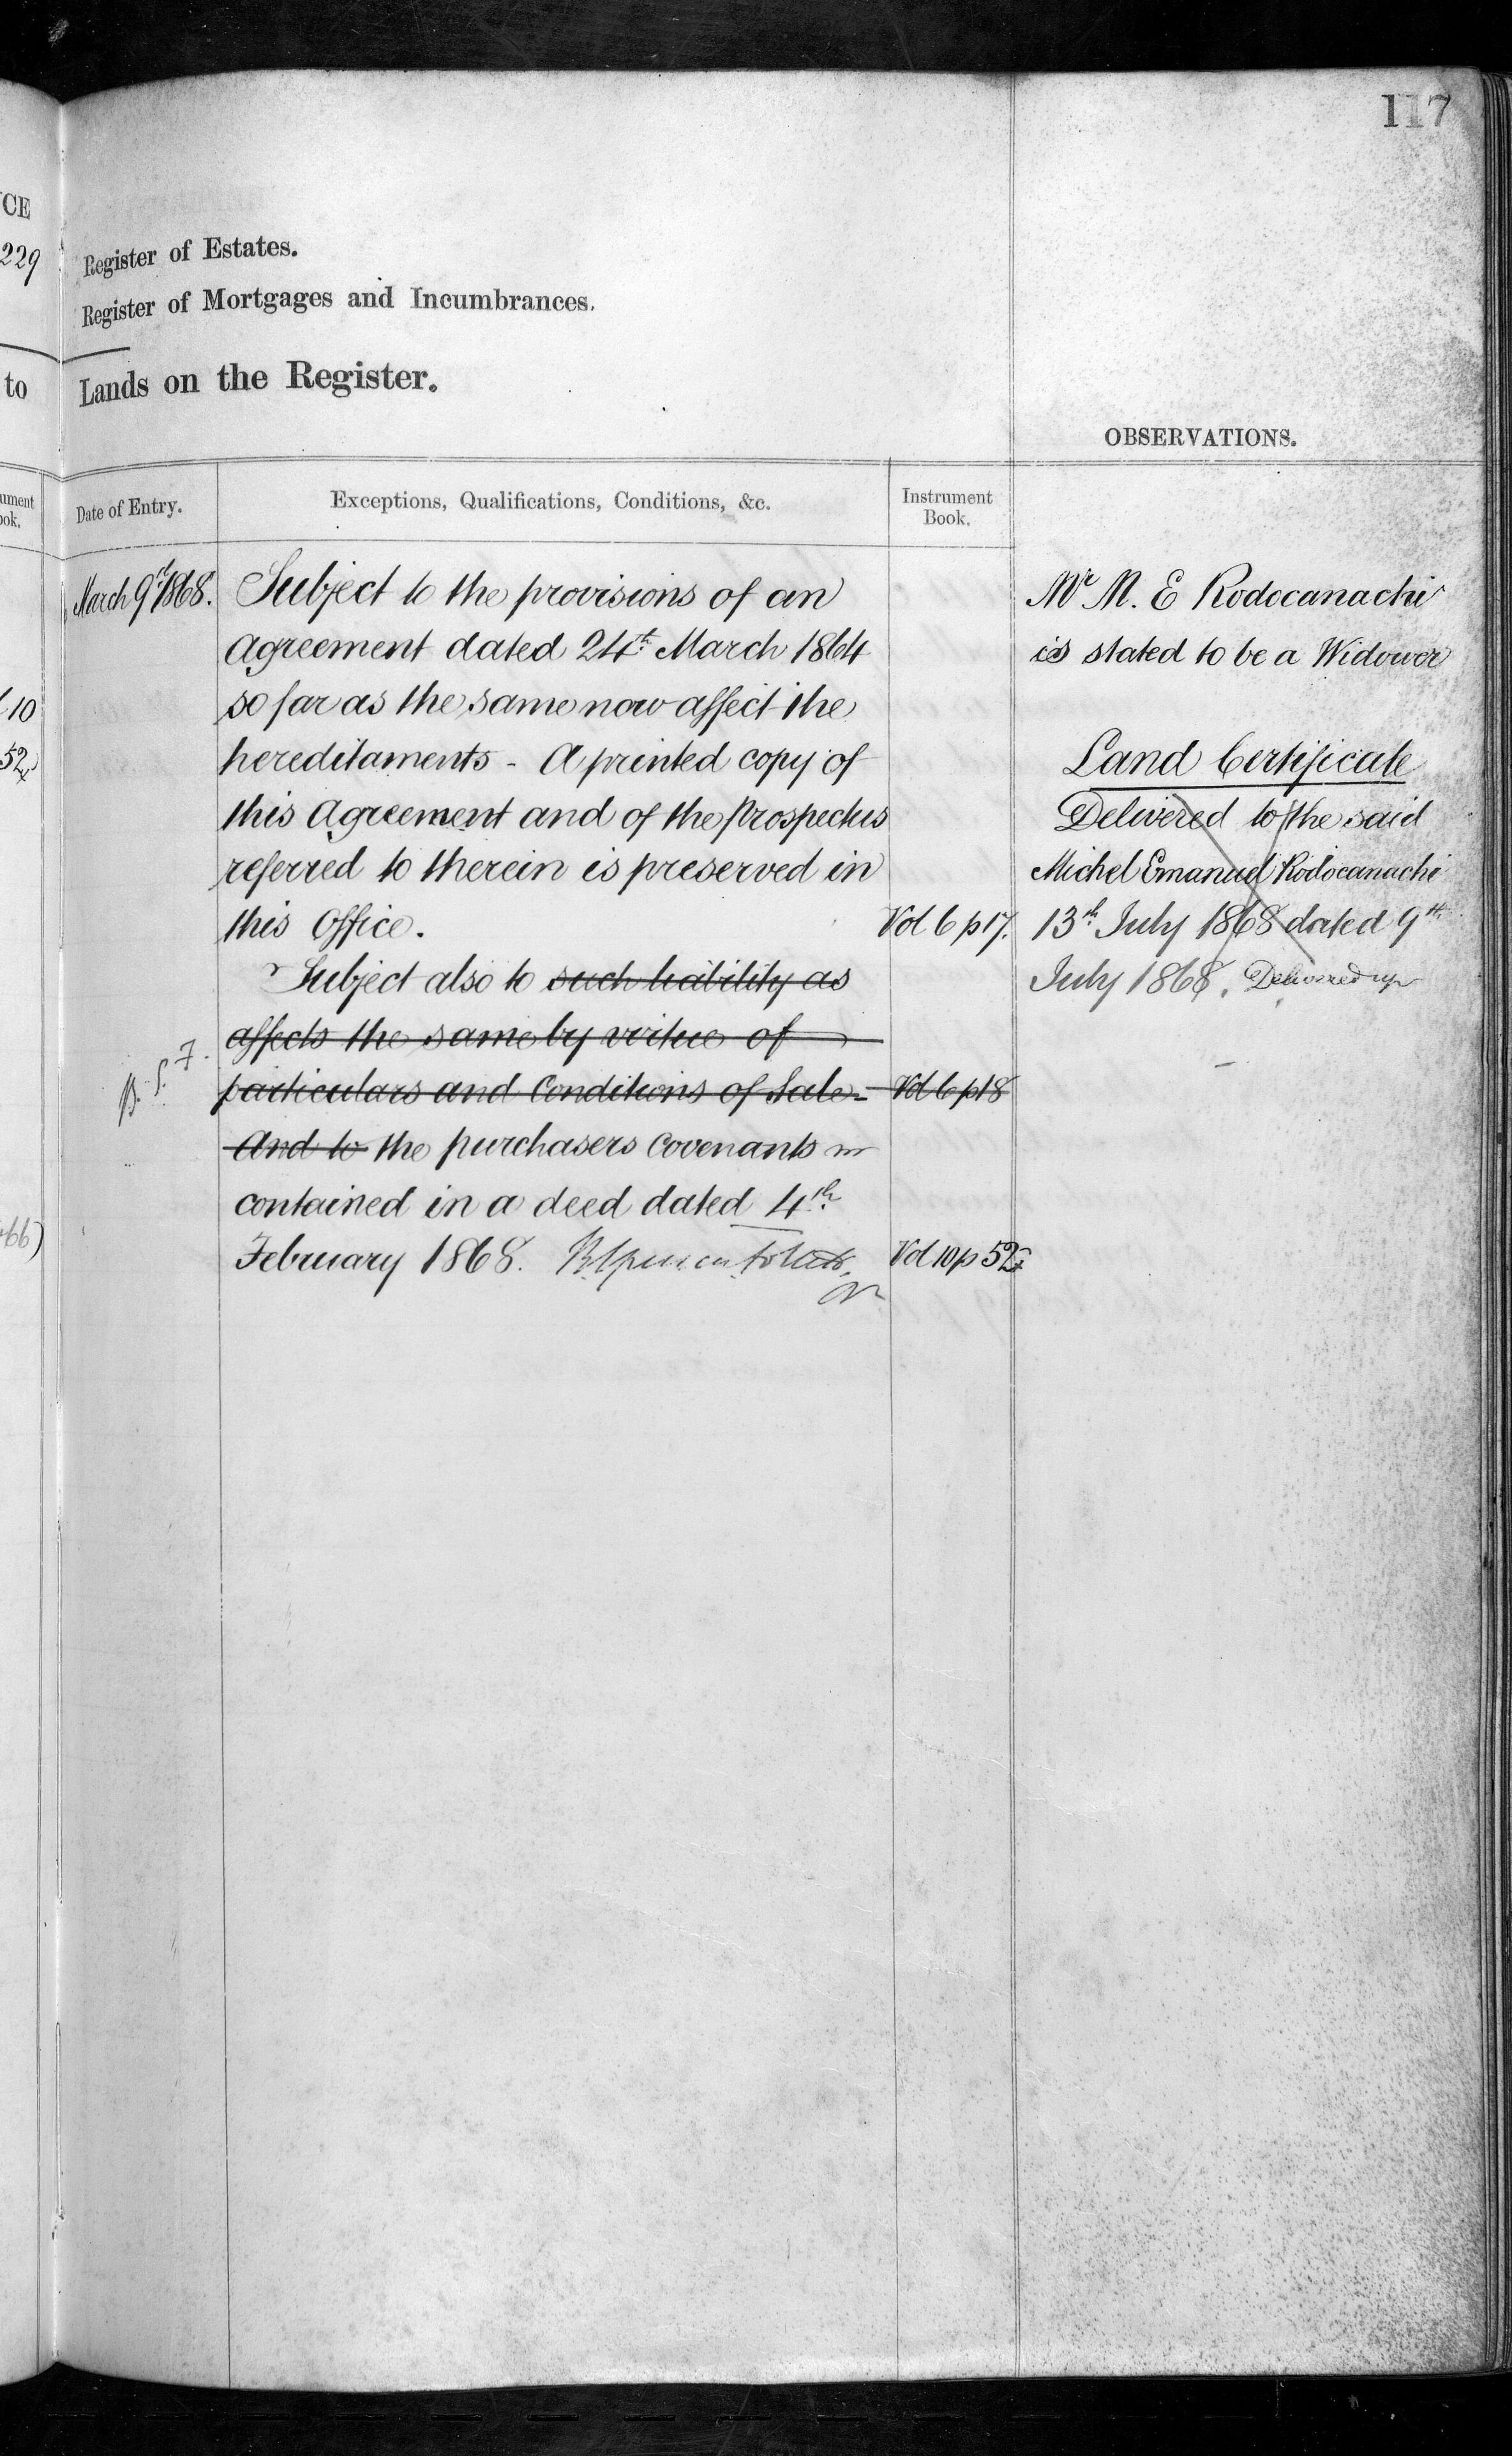 117
CE
229
Register of Estates.
Register of Mortgages and Incumbrances.
to
Lands on the Register.
OBSERVATIONS.
ument
ook.
Date of Entry.
Exceptions, Qualifications, Conditions, &c.
Instrument
Book.
March 9th 1868.
Subject to the provisions of an
Agreement dated 24th March 1864
so far as the same now affect the
hereditaments - A printed copy of
this Agreement and of the Prospectus
referred to therein is preserved in
this Office.
Vol 6 p 17.
Subject also to such liability as
affects the same by virtue of
particulars and Conditions of Sale-
Vol 6 p 18
And to the purchasers Covenants
contained in a deed dated 4th
February 1868.
Vol 10 p 52
B. S. F.
10
52
66)
Mr M. E Rodocanachi
is stated to be a Widower
Land Certificate
Delivered to the said
Michel Emanuel Rodocanachi
13th July 1868 dated 9th
July 1868. Delivered up